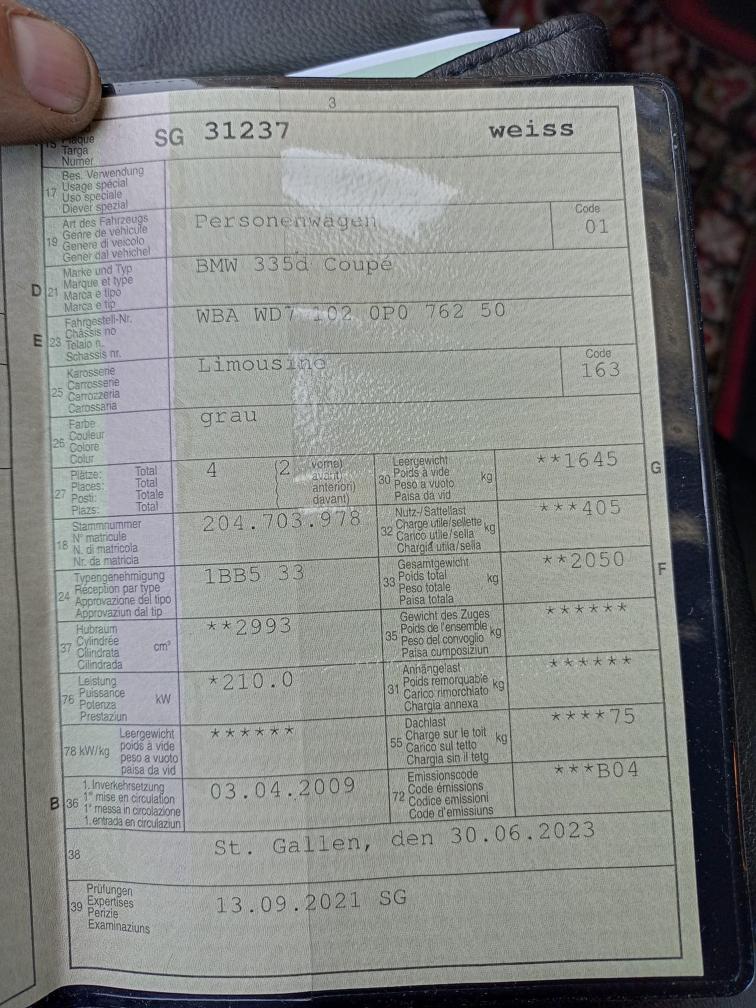 3
15 Plaque
Targa
Numer
SG 31237 weiss
17 Bes. Verwendung
Usage spécial
Uso speciale
Diever spezial
19 Art des Fahrzeugs
Genre de véhicule
Genere di veicolo
Gener dal vehichel
Personenwagen
Code
01
D 21 Marke und Typ
Marque et type
Marca e tipo
Marca e tip
BMW 335d Coupé
E 23 Fahrgestell-Nr.
Châssis no
Telaio n.
Schassis nr.
WBA WD7 102 0P0 762 50
25 Karosserie
Carrosserie
Carrozzeria
Carossaria
Limousine
Code
163
26 Farbe
Couleur
Colore
Colur
grau
27 Plätze: Total
Places: Total
Posti: Totale
Plazs: Total
4 (2 vorne)
avant)
anteriori)
davant)
G 30 Leergewicht
Poids à vide
Peso a vuoto
Paisa da vid
kg
**1645
18 Stammnummer
N° matricule
N. di matricola
Nr. da matricla
204.703.978
32 Nutz-/Sattellast
Charge utile/sellette
Carico utile/sella
Chargia utila/sella
kg
***405
24 Typengenehmigung
Réception par type
Approvazione del tipo
Approvaziun dal tip
1BB5 33
F 33 Gesamtgewicht
Poids total
Peso totale
Paisa totala
kg
**2050
37 Hubraum
Cylindrée
Cilindrata
Cilindrada
cm³
**2993
35 Gewicht des Zuges
Poids de l'ensemble
Peso del convoglio
Paisa cumposiziun
kg
******
76 Leistung
Puissance
Potenza
Prestaziun
kW
*210.0
31 Anhängelast
Poids remorquable
Carico rimorchiato
Chargia annexa
kg
******
78 kW/kg Leergewicht
poids à vide
peso a vuoto
paisa da vid
******
55 Dachlast
Charge sur le toit
Carico sul tetto
Chargia sin il tetg
kg
****75
B 36 1. Inverkehrsetzung
1re mise en circulation
1a messa in circolazione
1. entrada en circulaziun
03.04.2009
72 Emissionscode
Code émissions
Codice emissioni
Code d'emissiuns
***B04
38
St. Gallen, den 30.06.2023
39 Prüfungen
Expertises
Perizie
Examinaziuns
13.09.2021 SG